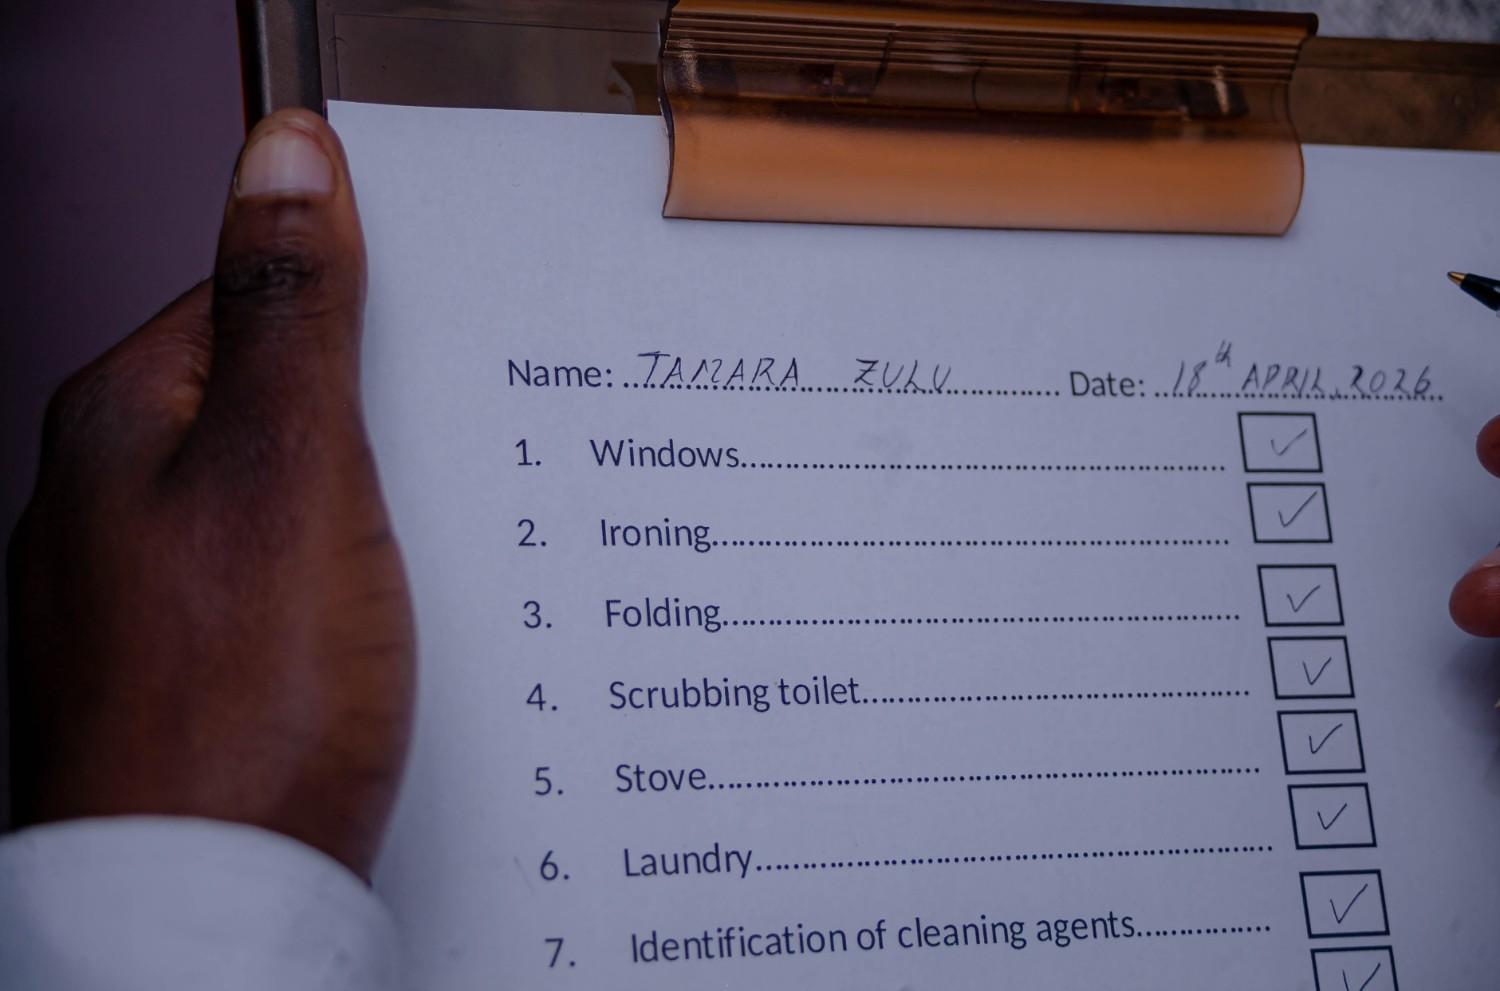 Name: TAMARA ZULU Date: 18th APRIL, 2026
1. Windows
2. Ironing
3. Folding
4. Scrubbing toilet
5. Stove
6. Laundry
7. Identification of cleaning agents